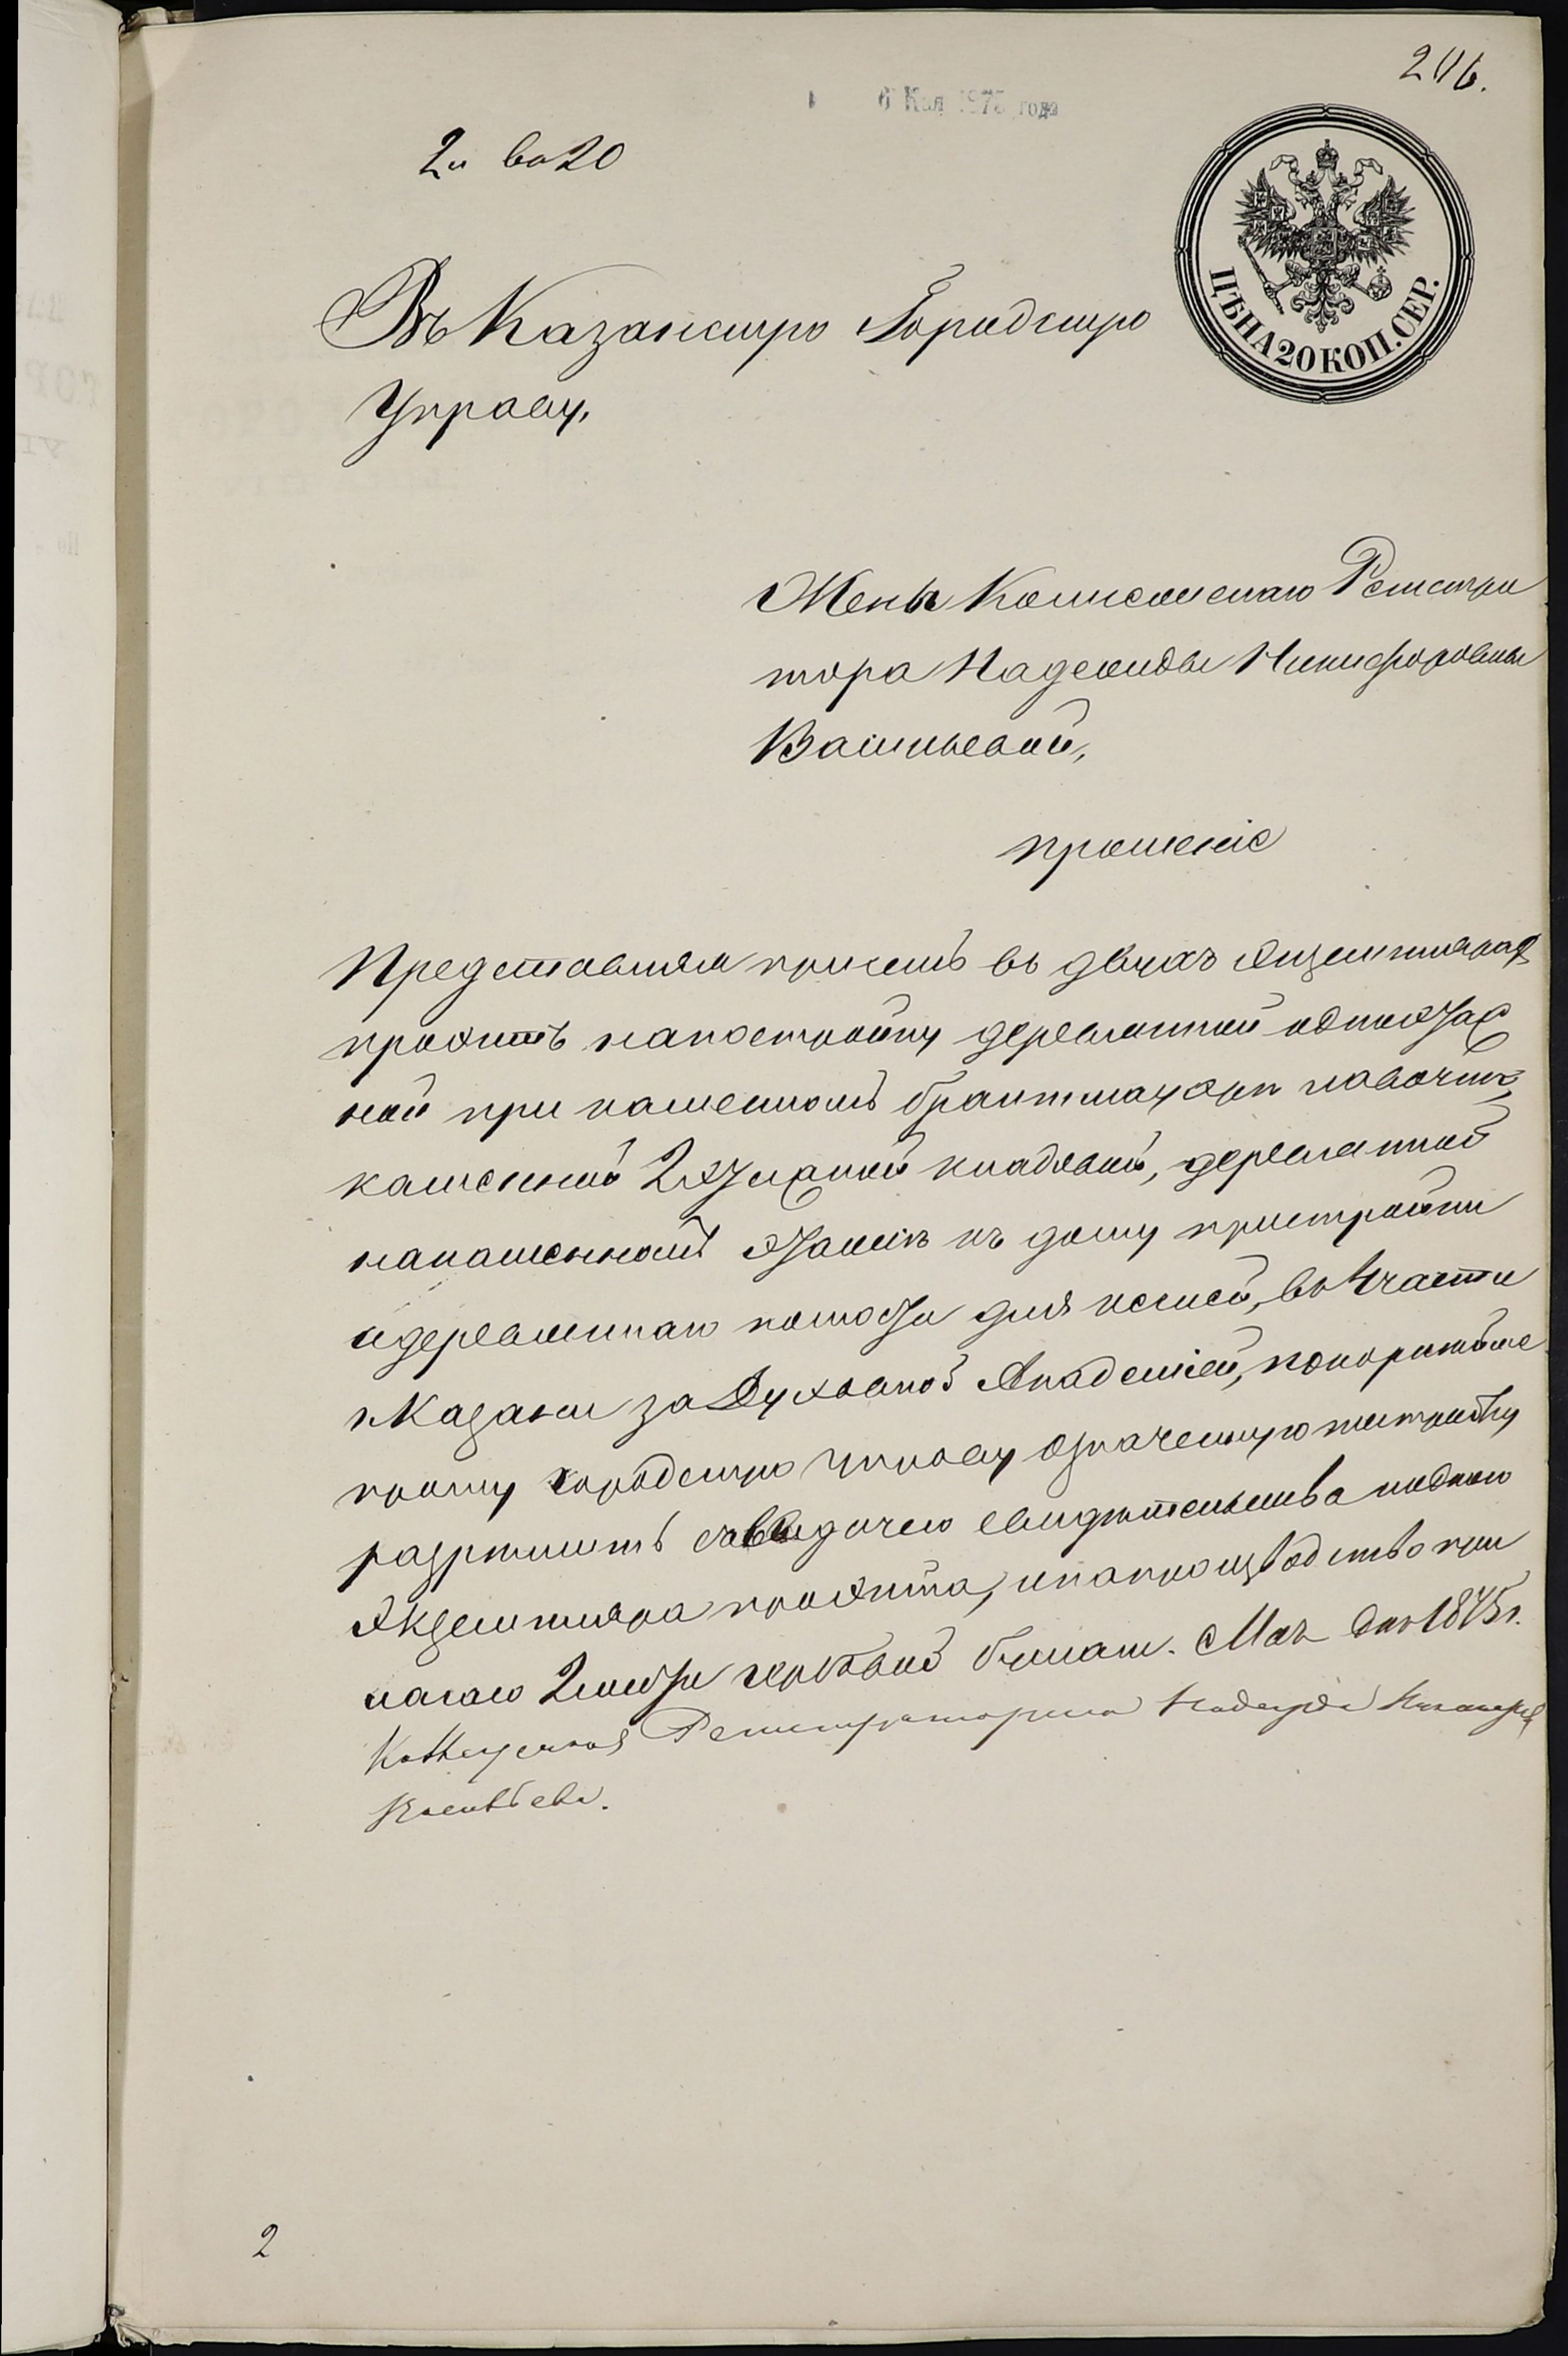 206.
6 Мая 1875 года
2 л во 20
ЦѢНА 20 КОП. СЕР.
Въ Казанскую Городскую
Управу,
Жены Колежскаго Регистра
тора Надежды Никифоровны
Васильевой,
прошеніе
Представляя присемъ въ двухъ экземплярах
проэктъ на постройку деревянной одноэтаж
ной при каменномъ брантмауере лавочки,
каменной 2 этажной кладовой, деревянной
на каменномъ этаже къ дому пристройки
и деревяннаго погреба для, во 4 части
г. Казани за Духовной Академіей, покорнейше
прошу городскую управу означенную постройку
разрешить с выдачею свидетельства и одного
экземпляра проэкта, и на производство при
лагаю 2 листа гербовой бумаги. Мая дня 1875 г.
Коллежская Регистраторша Надежда
Васильева.
2